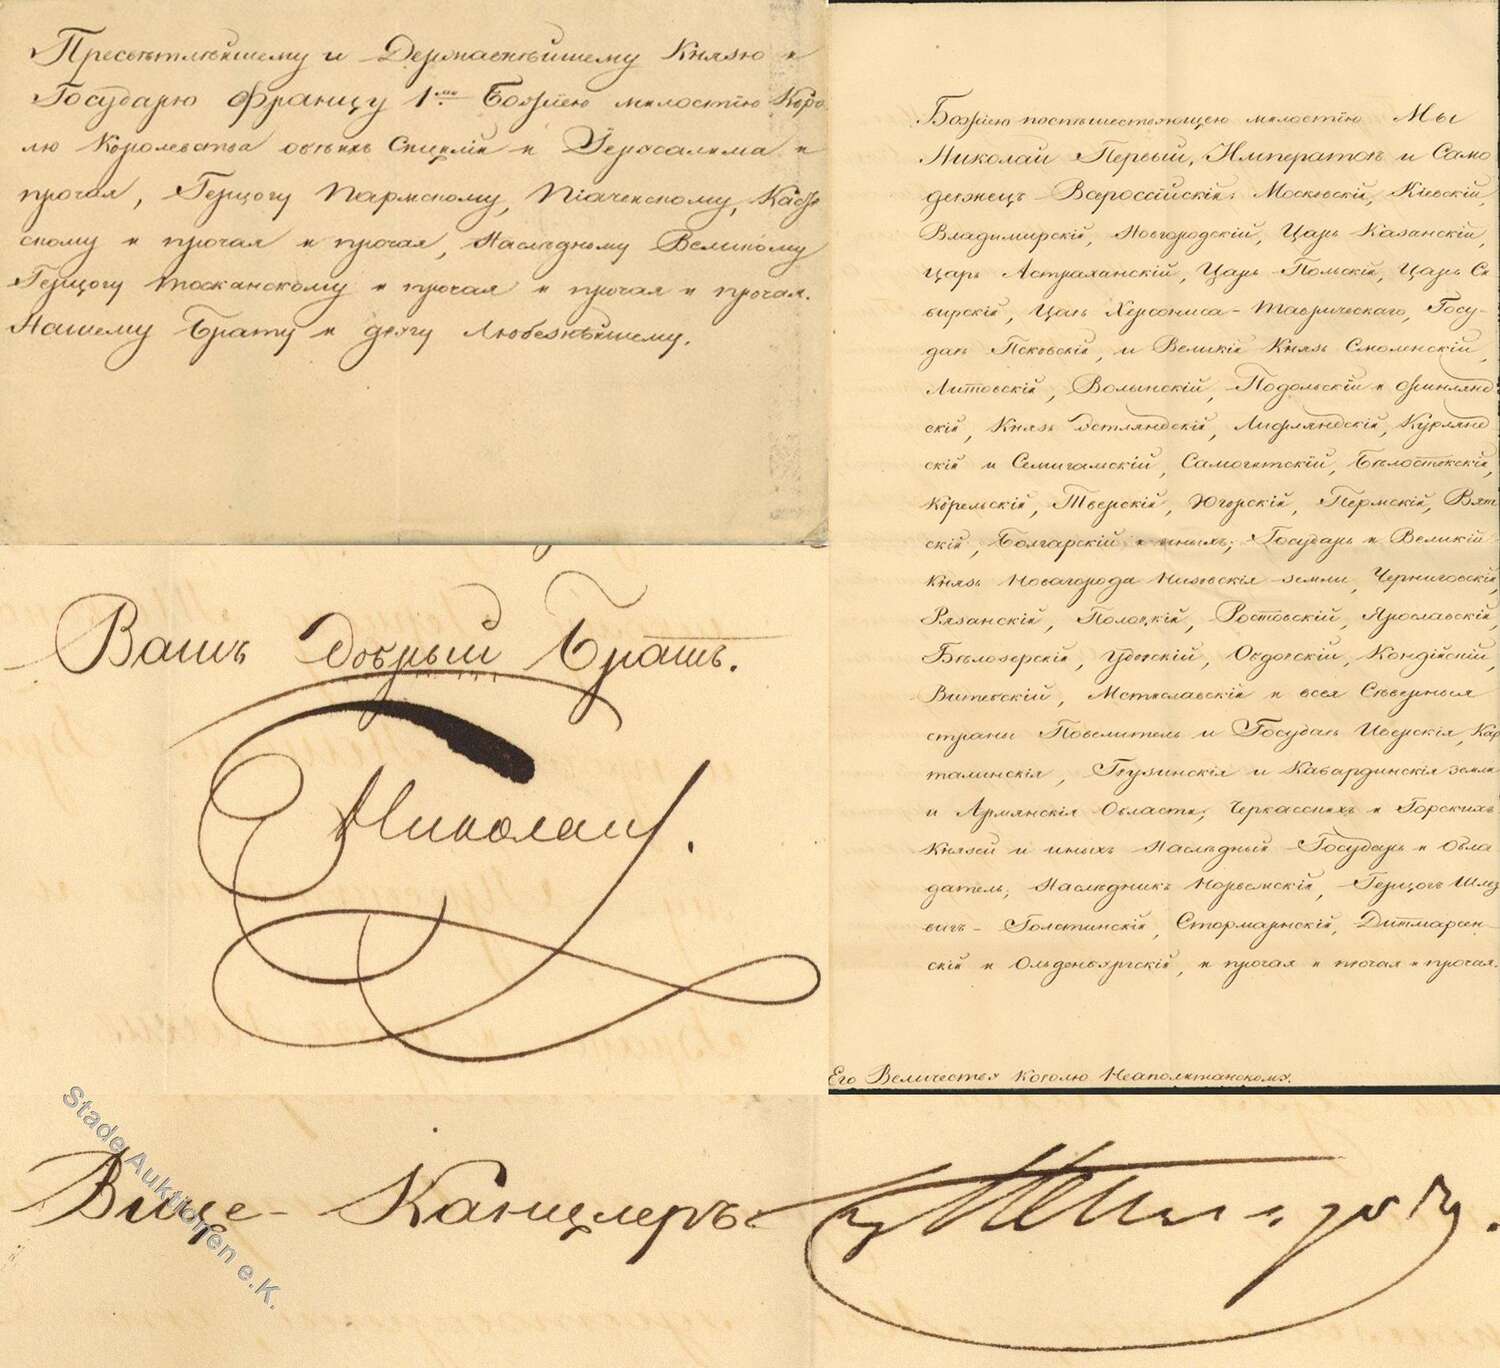 Пресвѣтлѣйшему и Державнѣйшему Князю и
Государю Францу 1му Божіею милостію Коро
лю Королевства обѣихъ Сицилій и Іерусалима и
прочая, Герцогу Пармскому, Піаченскому, Каст
скому и прочая и прочая, Наслѣдному Великому
Герцогу Тосканскому и прочая и прочая и прочая.
Нашему Брату и другу Любезнѣйшему.
Вашъ добрый Братъ.
Николай.
Божіею поспѣшествующею милостію Мы
Николай Первый, Императоръ и Само
держецъ Всероссійскій: Московскій, Кіевскій,
Владимирскій, Новгородскій, Царь Казанскій,
Царь Астраханскій, Царь Польскій, Царь Си
бирскій, Царь Херсониса-Таврическаго, Госу-
дарь Псковскій, и Великій Князь Смоленскій,
Литовскій, Волынскій, Подольскій и Финлянд
скій, Князь Эстляндскій, Лифляндскій, Курлянд
скій и Семигальскій, Самогитскій, Бѣлостокскій,
Корельскій, Тверскій, Югорскій, Пермскій, Вят
скій, Болгарскій и иныхъ; Государь и Великій
Князь Новагорода Низовскія земли, Черниговскій,
Рязанскій, Полоцкій, Ростовскій, Ярославскій,
Бѣлозерскій, Удорскій, Обдорскій, Кондійскій,
Витебскій, Мстиславскій и всея Сѣверныя
страны Повелитель и Государь Иверскія, Кар
талинскія, Грузинскія и Кабардинскія земли
и Армянскія Области; Черкасскихъ и Горскихъ
Князей и иныхъ Наслѣдный Государь и Обла
датель; Наслѣдникъ Норвежскій, Герцогъ Шлез
вигъ-Голстинскій, Стормарнскій, Дитмарсен-
скій и Ольденбургскій, и прочая и прочая и прочая.
Его Величества Королю Неаполитанскому.
Вице-Канцлеръ
Stade Auktionen e.K.